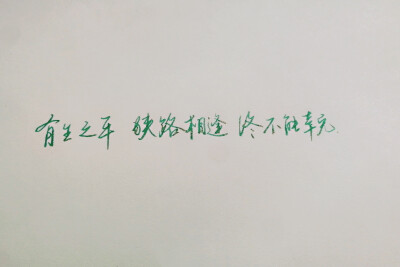 有生之年 狭路相逢 终不能幸免